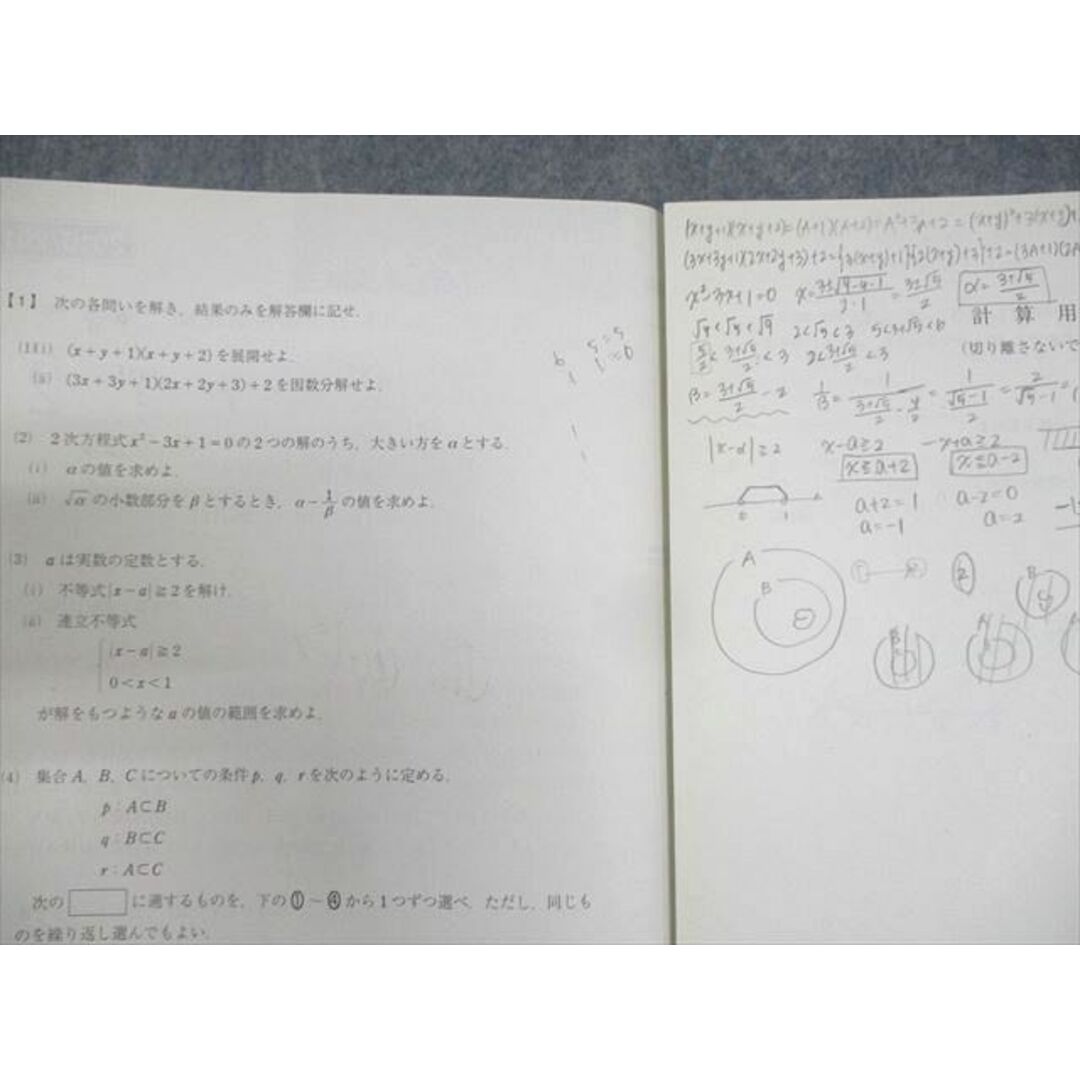 【1】 次の各問いを解き，結果のみを解答欄に記せ．
(1)(i) (x+y+1)(x+y+2)を展開せよ．
(ii) (3x+3y+1)(2x+2y+3)+2を因数分解せよ．
(2) 2次方程式x²-3x+1=0の2つの解のうち，大きい方をαとする．
(i) αの値を求めよ．
(ii) √αの小数部分をβとするとき，α-1/βの値を求めよ．
(3) aは実数の定数とする．
(i) 不等式|x-a|≧2を解け．
(ii) 連立不等式
|x-a|≧2
0<x<1
が解をもつようなaの値の範囲を求めよ．
(4) 集合A，B，Cについての条件p，q，rを次のように定める．
p：A⊂B
q：B⊂C
r：A⊂C
次の　　に適するものを，下の①～④から1つずつ選べ．ただし，同じも
のを繰り返し選んでもよい．
(x+y+1)(x+y+2)=(A+1)(A+2)=A²+3A+2=(x+y)²+3(x+y)+
(3x+3y+1)(2x+2y+3)+2={3(x+y)+1}{2(x+y)+3}+2=(3A+1)(2A
x²-3x+1=0 α=3+√5/2
計算用
√4<√5<√9 2<√5<3 5<3+√5<6
(切り離さないで
5/2<3+√5/2<3 2<3+√5/2<3
β=3+√5/2-2
|x-a|≧2 x-a≧2 -x+a≧2
x≧a+2 x≦a-2
0 1
a+2=1 a-2=0
a=-1 a=2
A
B
2
B
B
A